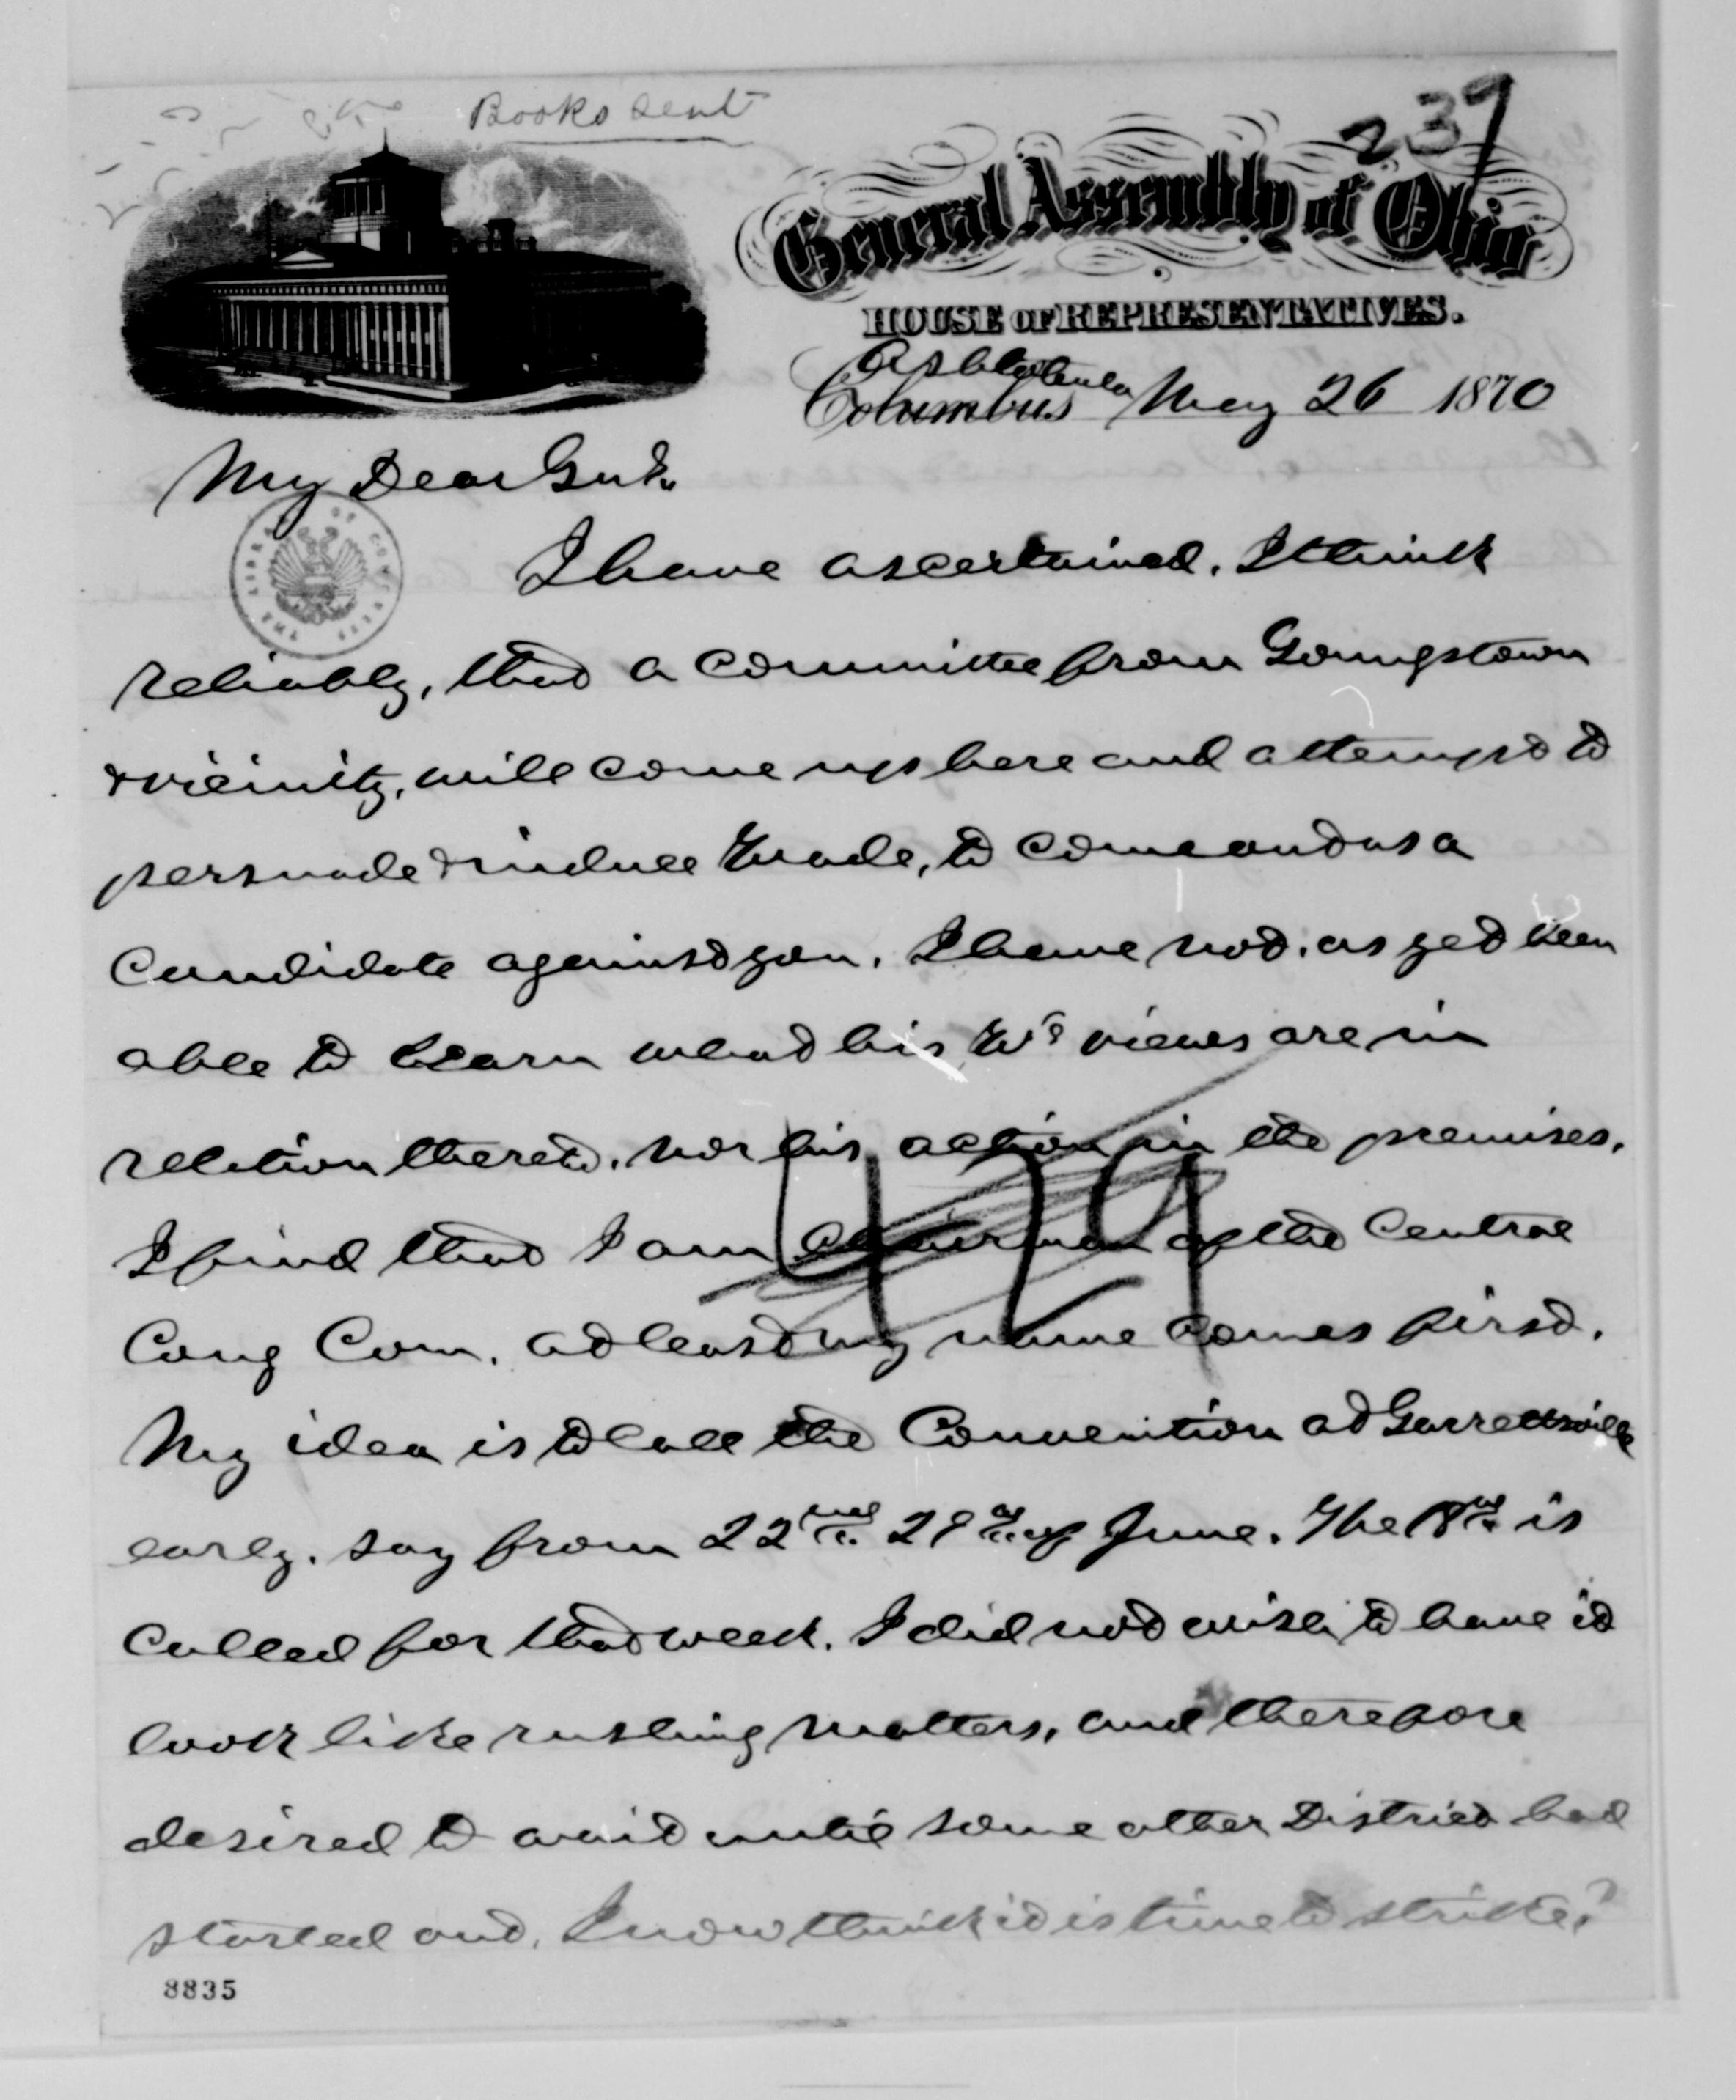 Books sent
237
General Assembly of Ohio
HOUSE OF REPRESENTATIVES.
Ashtabula
Columbus May 26 1870
My Dear Genl.
THE LIBRARY OF CONGRESS
I have ascertained, I think
reliably, that a committee from Youngstown
& vicinity, will come up here and attempt to
persuade & induce Wade, to come out as a
Candidate against you. I have not, as yet been
able to learn what his, W's views are in
relation thereto, nor his action in the premises.
I find that I am Chairman of the Central
Cong Com. at least my name comes first.
My idea is to call the Convention at Garrettsville
early. say from 22nd 29th of June. The 18th is
called for that week. I did not wish to have it
look like rushing matters, and therefore
desired to wait until some other District had
started out. I now think it is time to strike?
479
8835